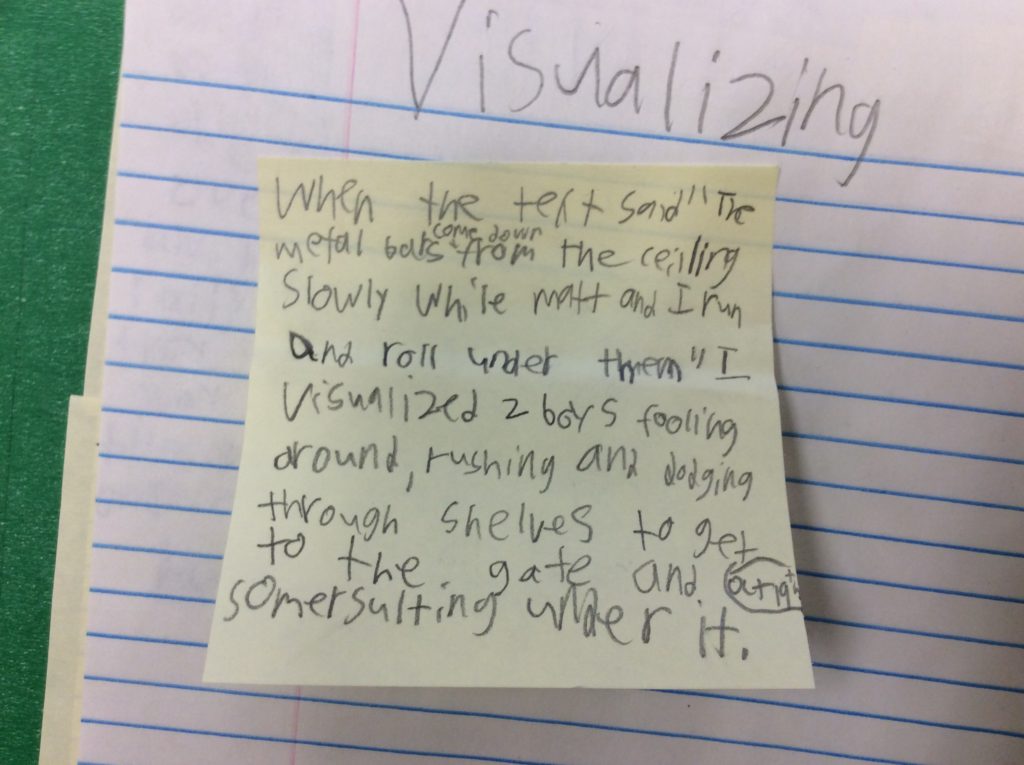 Visualizing
When the text said "The
metal bars come down from the ceiling
Slowly while matt and I run
and roll under them" I
Visualized 2 boys fooling
around, rushing and dodging
through shelves to get
to the gate and
somersulting under it.